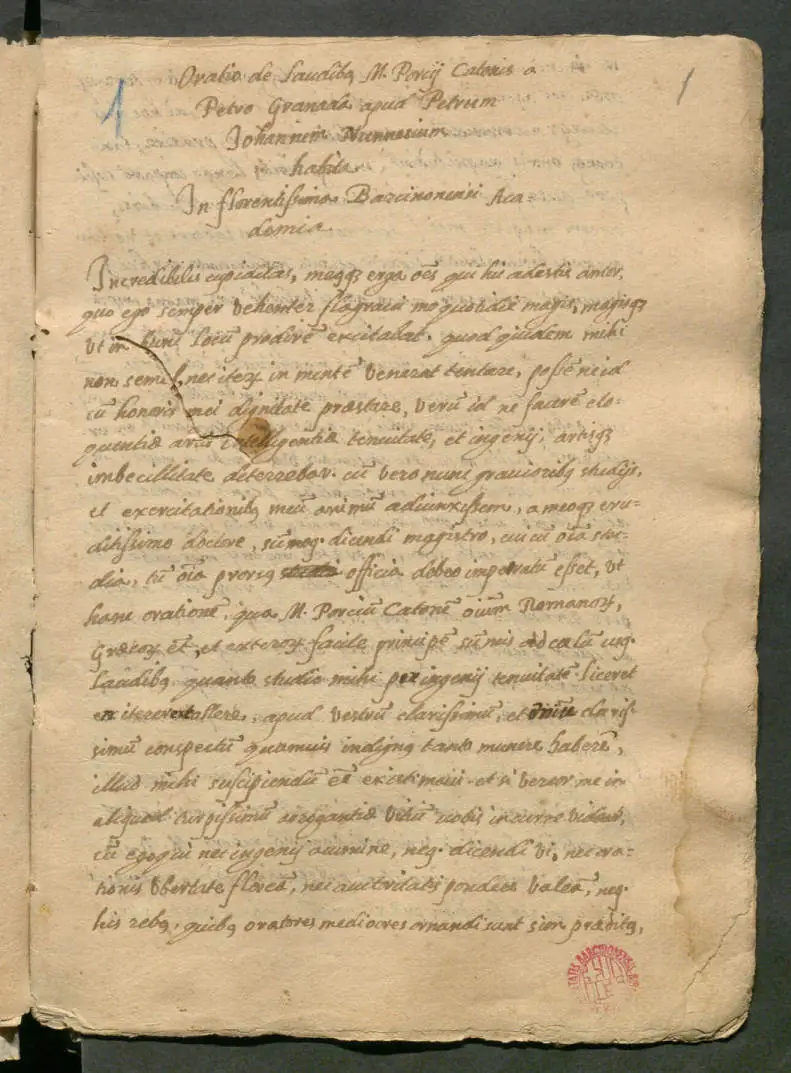 1
1
Oratio de Laudibꝫ M. Porcij Catonis a
Petro Granada apud Petrum
Johannem Nunnesium
habita
In florentissima Barcinonensi Aca-
demia
Incredibilis cupiditas, meaqꝫ erga oẽs qui hic adestis amor,
quo ego semper vehenter flagravi me quotidie magis, magisqꝫ
vt in hunc locũ prodirẽ excitabat. quod quidem mihi
non semel, nec iterꝝ in mentẽ venerat tentare, possẽ ne id
cũ honoris mei dignitate præstare, verũ id ne facerẽ elo-
quentiæ intelligentiæ tenuitate, et ingenij, artisqꝫ
imbecillitate deterrebar. cũ vero nunc grauioribꝫ studijs,
et exercitationibꝫ meũ animũ adiunxissem, a meoqꝫ eru-
ditissimo doctore, sũmoqꝫ dicendi magistro, cui cũ oĩa stu-
dia, tũ oĩa prorsꝫ officia debeo imperatũ esset, vt
hanc orationẽ, qua M. Porciũ Catonẽ oĩum Romanoꝝ,
Græcoꝝ et̃, et exteroꝝ facile principẽ sũmis ad cælũ usqꝫ
Laudibꝫ quanto studio mihi per ingenij tenuitatẽ liceret
apud vestrũ clarissimũ, et claris-
simũ conspectũ quamuis indignꝫ tanto munere haberẽ,
illud mihi suscipiendũ eẽ existimaui. et si vereor ne in
aliquod turpissimum arrogantiæ vitiũ uobis incurre videar,
cũ ego qui nec ingenij acumine, neqꝫ dicendi vi, nec ora-
tionis vbertate floreã, nec auctoritatis pondere valeã, neqꝫ
his rebꝫ, quibꝫ oratores mediocres ornandi sunt sim præditꝫ,